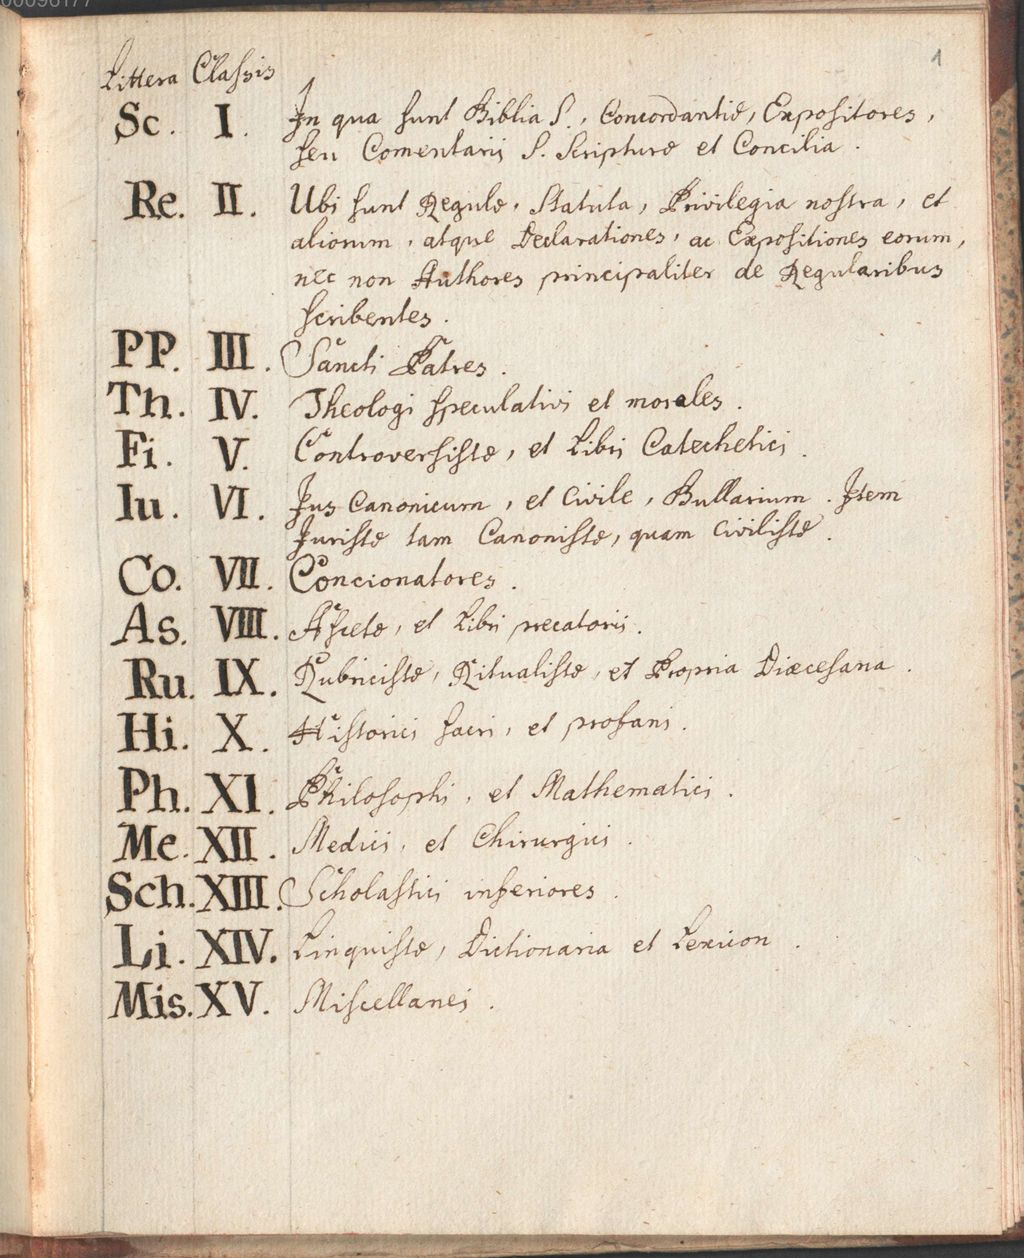 00096177
1
Littera Classis
Sc. I. In qua sunt Biblia S., Concordantiæ, Expositores,
seu Comentarii S. Scripturæ et Concilia.
Re. II. Ubi sunt Regulæ, Statuta, Privilegia nostra, et
aliorum, atque Declarationes, ac Expositiones eorum,
nec non Authores principaliter de Regularibus
scribentes.
PP. III. Sancti Patres.
Th. IV. Theologi speculativi et morales.
Fi. V. Controversistæ, et Libri Catechetici.
Iu. VI. Jus Canonicum, et Civile, Bullarium. Item
Juristæ tam Canonistæ, quam Civilistæ.
Co. VII. Concionatores.
As. VIII. Ascetæ, et Libri precatorii.
Ru. IX. Rubricistæ, Ritualistæ, et Propria Diæcesana.
Hi. X. Historici sacri, et profani.
Ph. XI. Philosophi, et Mathematici.
Me. XII. Medici, et Chirurgici.
Sch. XIII. Scholastici inferiores.
Li. XIV. Linquistæ, Dictionaria et Lexicon.
Mis. XV. Miscellanei.